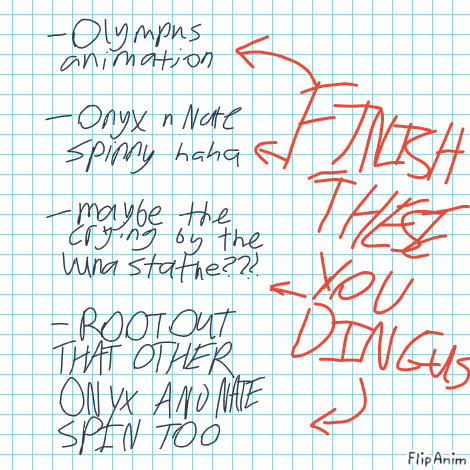 -Olympus
animation
-Onyx n Nate
spinny haha
-maybe the
crying by the
luna statue???!
-ROOT OUT
THAT OTHER
ONYX AND NATE
SPIN TOO
FINISH
THESE
YOU
DINGUS
FlipAnim